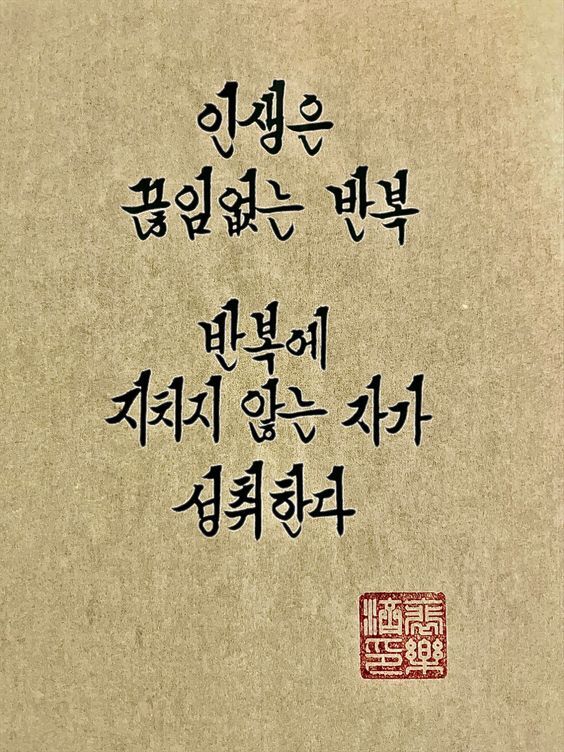 인생은
끊임없는 반복
반복에
지치지 않는 자가
성취한다